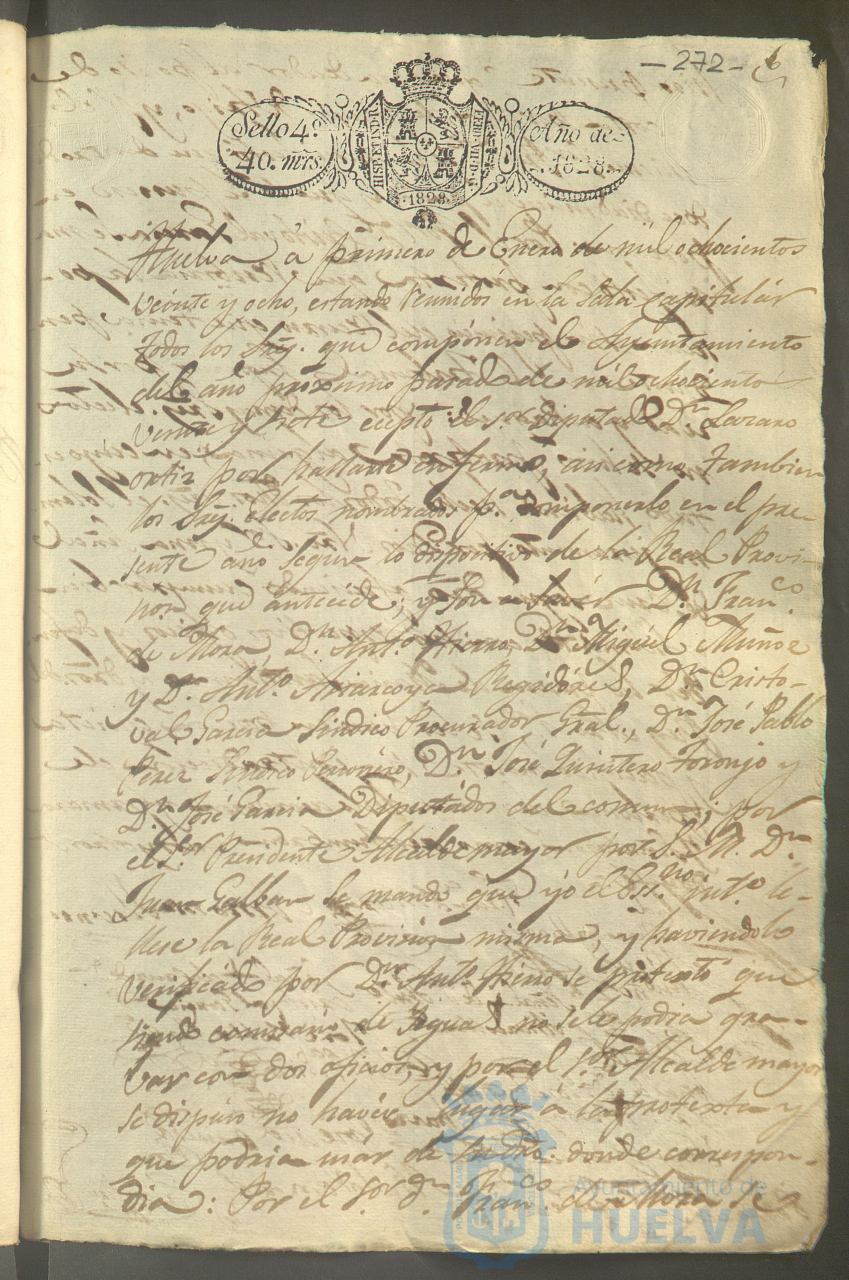 -272-
Sello 4.º
40. mrs.
HISP. ET IND. R.
FERD. VII D. G.
1828
Año de
1828
Huelva á primero de Enero de mil ochocientos
veinte y ocho, estando reunidos en la Sala capitular
todos los Srēs. que componen el Ayuntamiento
del año proximo pasado de mil ochocientos
veinte y siete ecepto el s.or Diputado D.n Lazaro
ortiz por hallarse enfermo, asi como tambien
los Srēs. Electos nombrados p.a componerlo en el pre-
sente año segun lo dispositivo de la Real Provi-
non que antecede, y son a saver D.n Fran.co
de Mora, D.n Ant.o Hierro, D.n Miguel Muñoz
y D.n Ant.o Regidores, D.n Cristo-
val Garcia Sindico Procurador Gral., D.n José Pablo
Perez Sindico Personero, D.n José Quintero Toronjo y
D.n José Garcia Diputados del comun; por
el S.or Presidente Alcalde mayor por S. M. D.n
Juan Galban se mando que yo el Ess.no int.o le-
llese la Real Provision misma, y haviendolo
verificado por D.n Ant.o Hierro se protextó que
siendo comisario de no se le podia gra-
var con dos oficios, y por el s.or Alcalde mayor
se dispuso no haver lugar á la protexta y
que podria usár de su dro. donde correspon-
dia: Por el S.or D.n Fran.co de Mora se
Ayuntamiento de
HUELVA